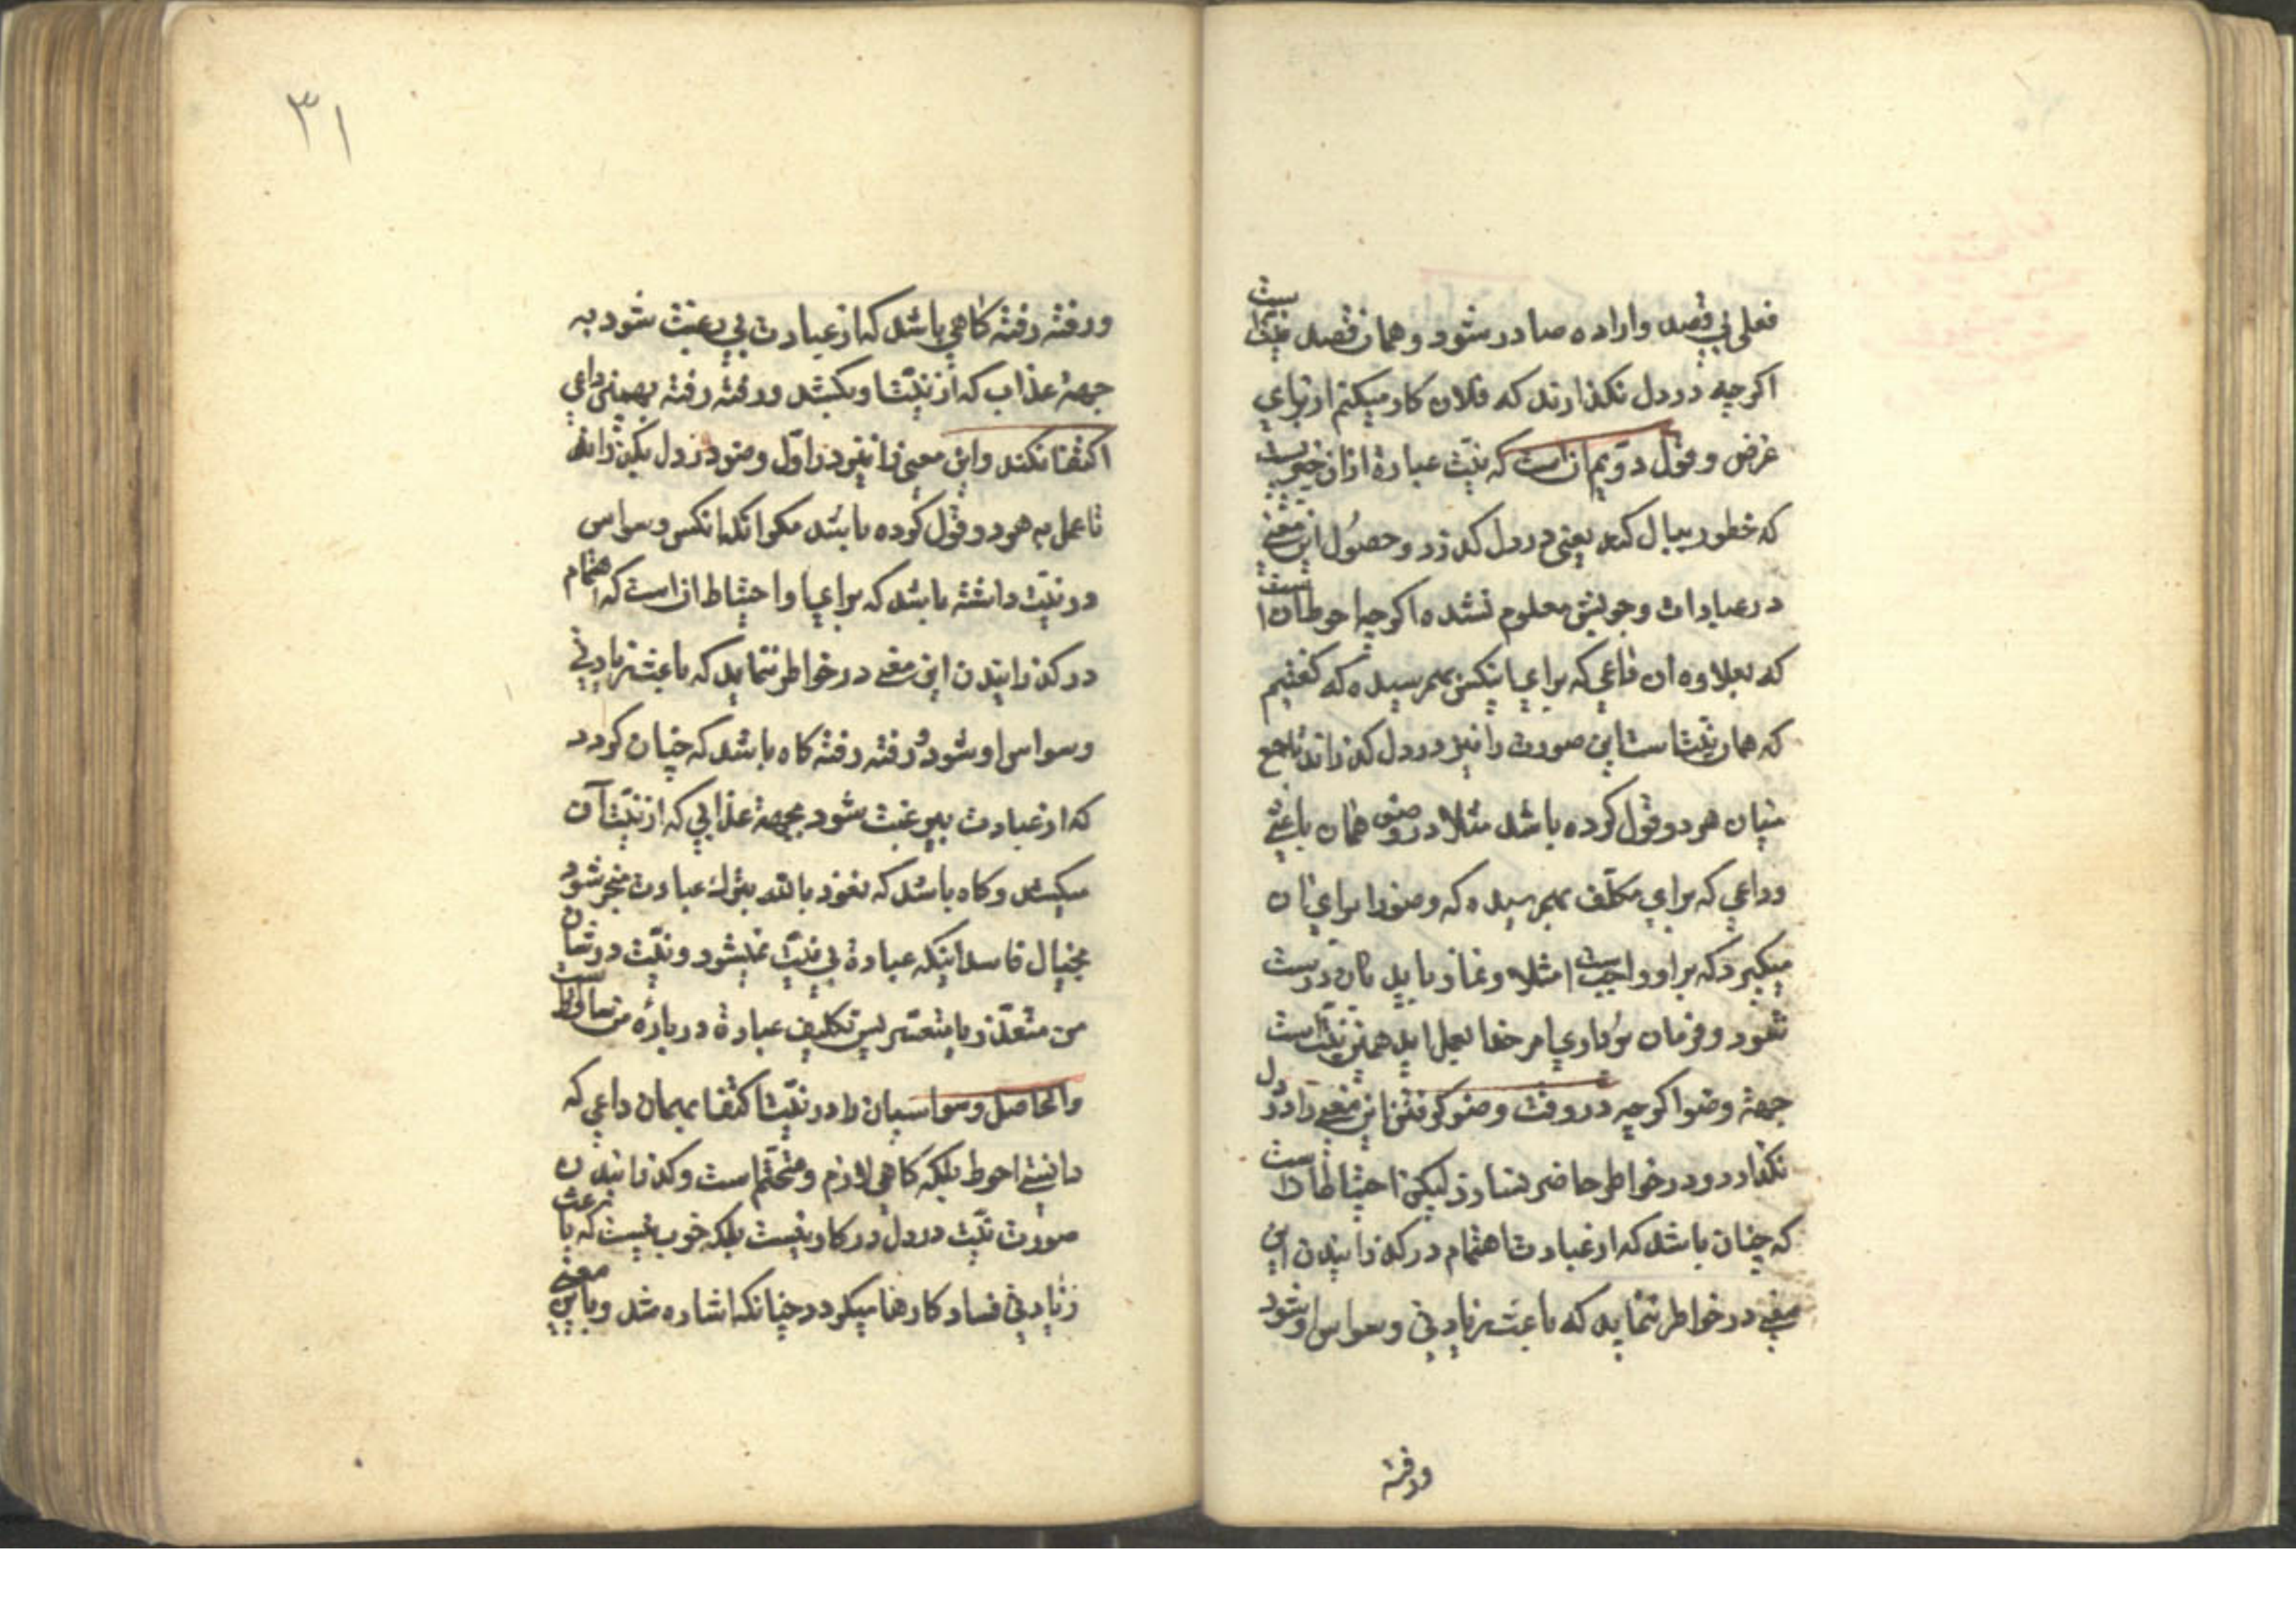 فعلی بی قصد واراده صادر شود وهمان قصد نیت است
اکرچه در دل نکذارند که فلان کار میکنم از برای
غرض وقول دویم ان است که نیت عبارة از ان
که خطور ببال کند یعنی در دل کذرد وحصول این معنی
در عبادات وجوبش معلوم نشده اکرچه احوط ان است
که بعلاوه ان داعی که برای اینکس بهمرسیده که کفتیم
که همان نیت است این صورت را نیز در دل کذراند تا جمع
میان هر دو قول کرده باشد مثلا در وضو همان باعثی
وداعی که برای مکلف بهمرسیده که وضو را برای ان
میکیرد که بر او واجب است مثلا ونماز باید بان درست
شود وفرمان برداری امر خدا بعمل اید همین نیت است
جهة وضو اکرچه در وقت وضو کرفتن این معنی را در دل
نکذارد ودر خواطر حاضر نسازد لیکن احتیاط ان است
که چنان باشد که از عبادت اهتمام در کذرانیدن این
معنی در خواطر ننماید که باعث زیادتی وسواس او شود
ورفته
۳۱
ورفته رفته کاهی باشد که از عبادت بی رغبت شود به
جهة عذاب که از نیت او بکشد ورفته رفته بهمین داعی
اکتفا نکند واین معنی را نیز در اول وضو در دل بکذراند
تا عمل به هر دو قول کرده باشد مکر انکه انکس وسواس
در نیت داشته باشد که برای او احتیاط ان است که اهتمام
در کذرانیدن این معنی در خواطر ننماید که باعث زیادتی
وسواس او شود ورفته رفته کاه باشد که چنان کردد
که از عبادت بیرغبت شود بجهة عذابی که از نیت آن
میکشد وکاه باشد که نعوذ بالله بترک عبادت منجر شود
بخیال فاسد اینکه عبادة بی نیت نمیشود ونیت درشان
من متعذر یا متعسر پس تکلیف عبادة در باره من ساقط است
والحاصل وسواسیان را در نیت اکتفا بهمان داعی که
دانستی احوط بلکه کاهی لازم ومتحتم است وکذرانیدن
صورت نیت در دل در کار نیست بلکه خوب نیست که باعث
زیادتی فساد کارها میکردد چنانکه اشاره شد وباین معنی